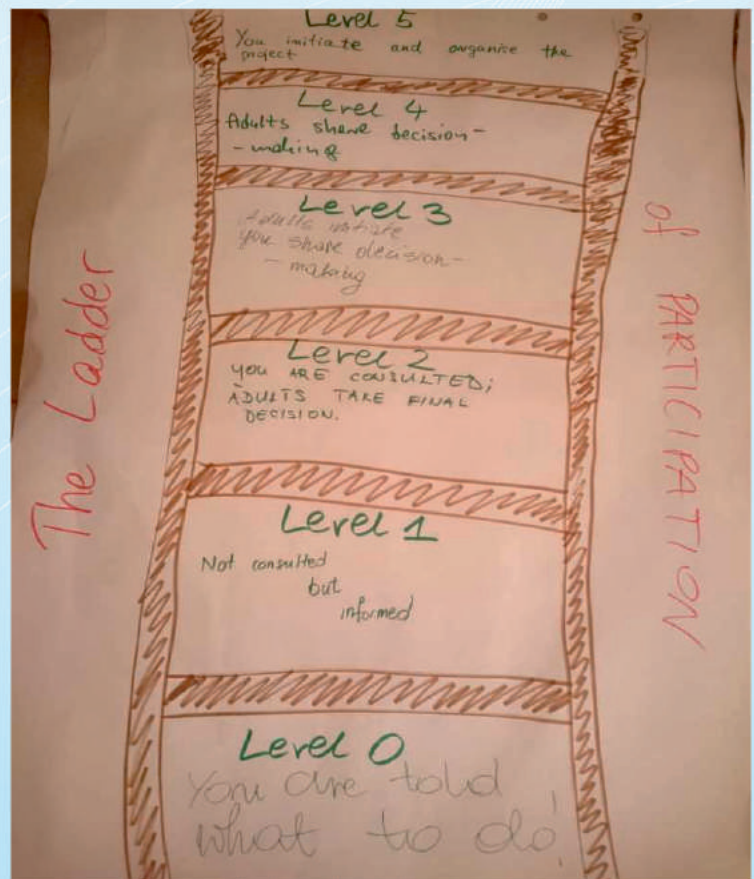 The Ladder
of PARTICIPATION
Level 5
You initiate and organise the
project
Level 4
Adults share decision-
- making
Level 3
Adults initiate
you share decision-
- making
Level 2
YOU ARE CONSULTED;
ADULTS TAKE FINAL
DECISION.
Level 1
Not consulted
but
informed
Level 0
You are told
what to do!